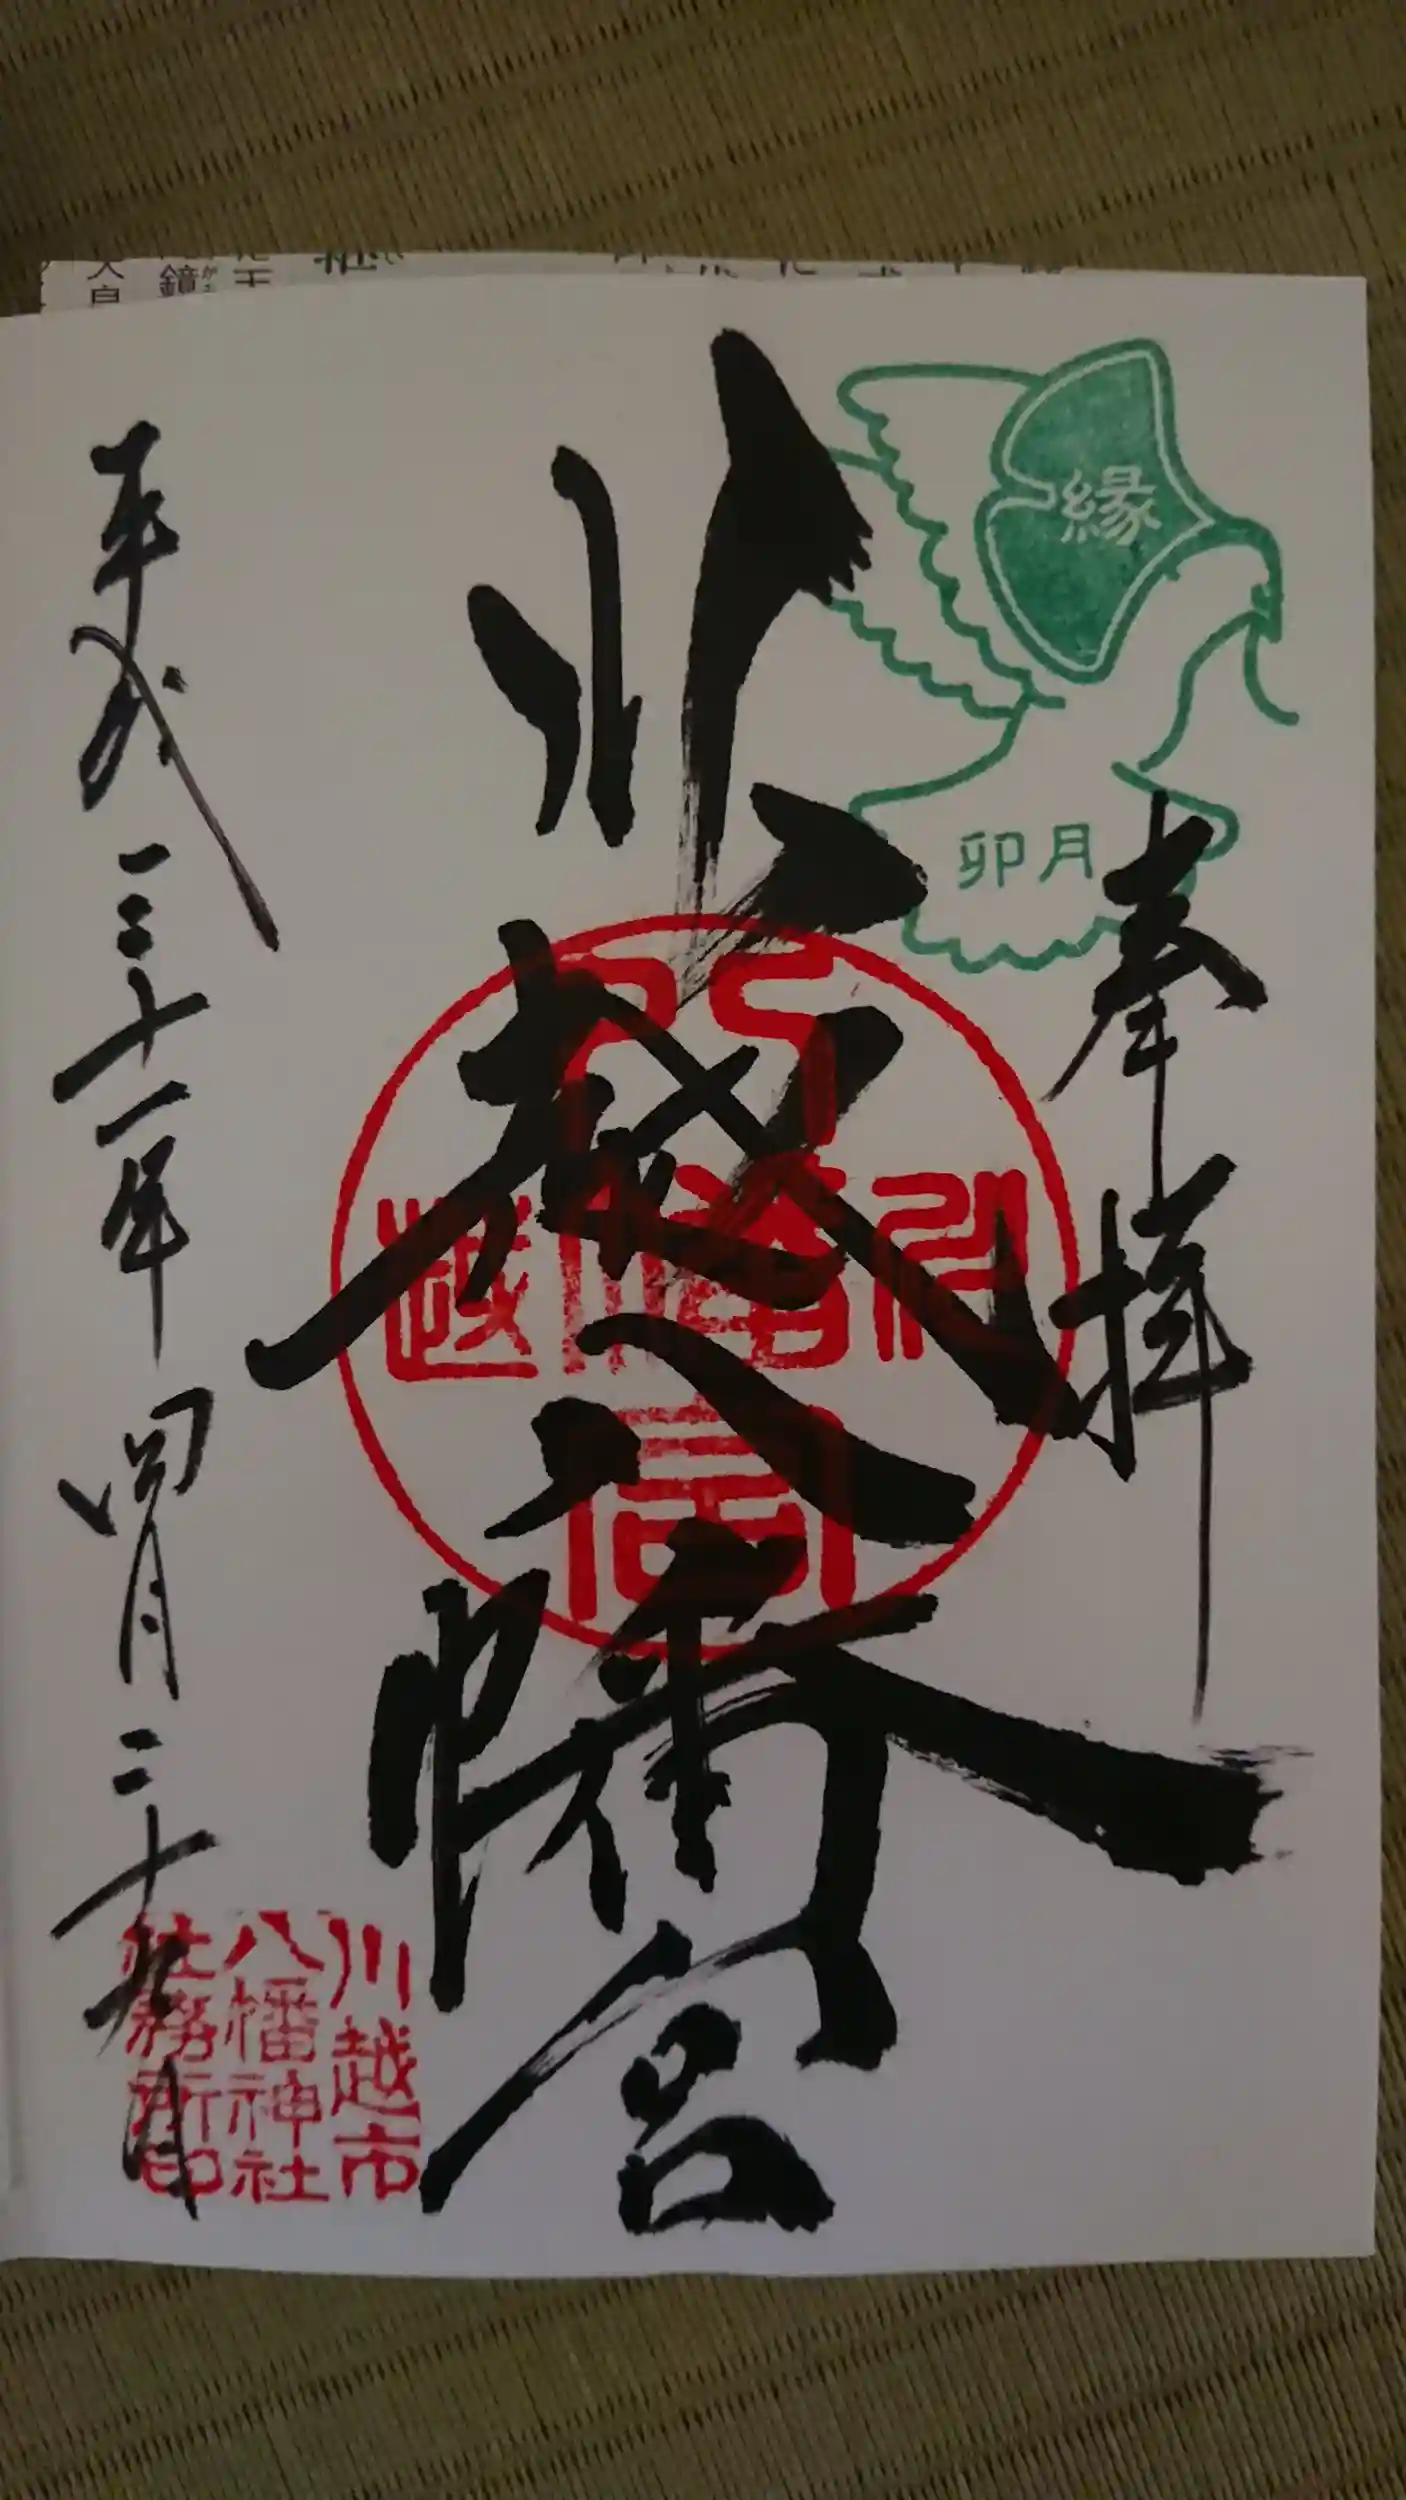 奉拝
縁
卯月
川越八幡宮
川越八幡宮
平成三十一年四月二十九日
川越市
八幡神社
社務所印